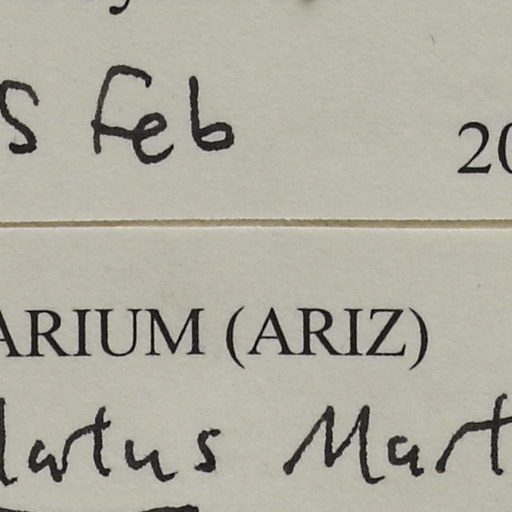 5 Feb 20
ARIUM (ARIZ)
latus Mart